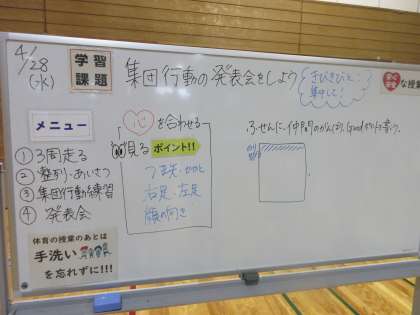 4/28
(水)
学習
課題
集団行動の発表会をしよう
きびきびと!
集中して!
な授業
メニュー
① 3周走る
② 整列・あいさつ
③ 集団行動練習
④ 発表会
心を合わせる
見る ポイント!!
つま先・かかと
右足・左足
顔の向き
ふせんに、仲間のがんばり、Goodを書く。
のり
体育の授業のあとは
手洗い
を忘れずに!!!